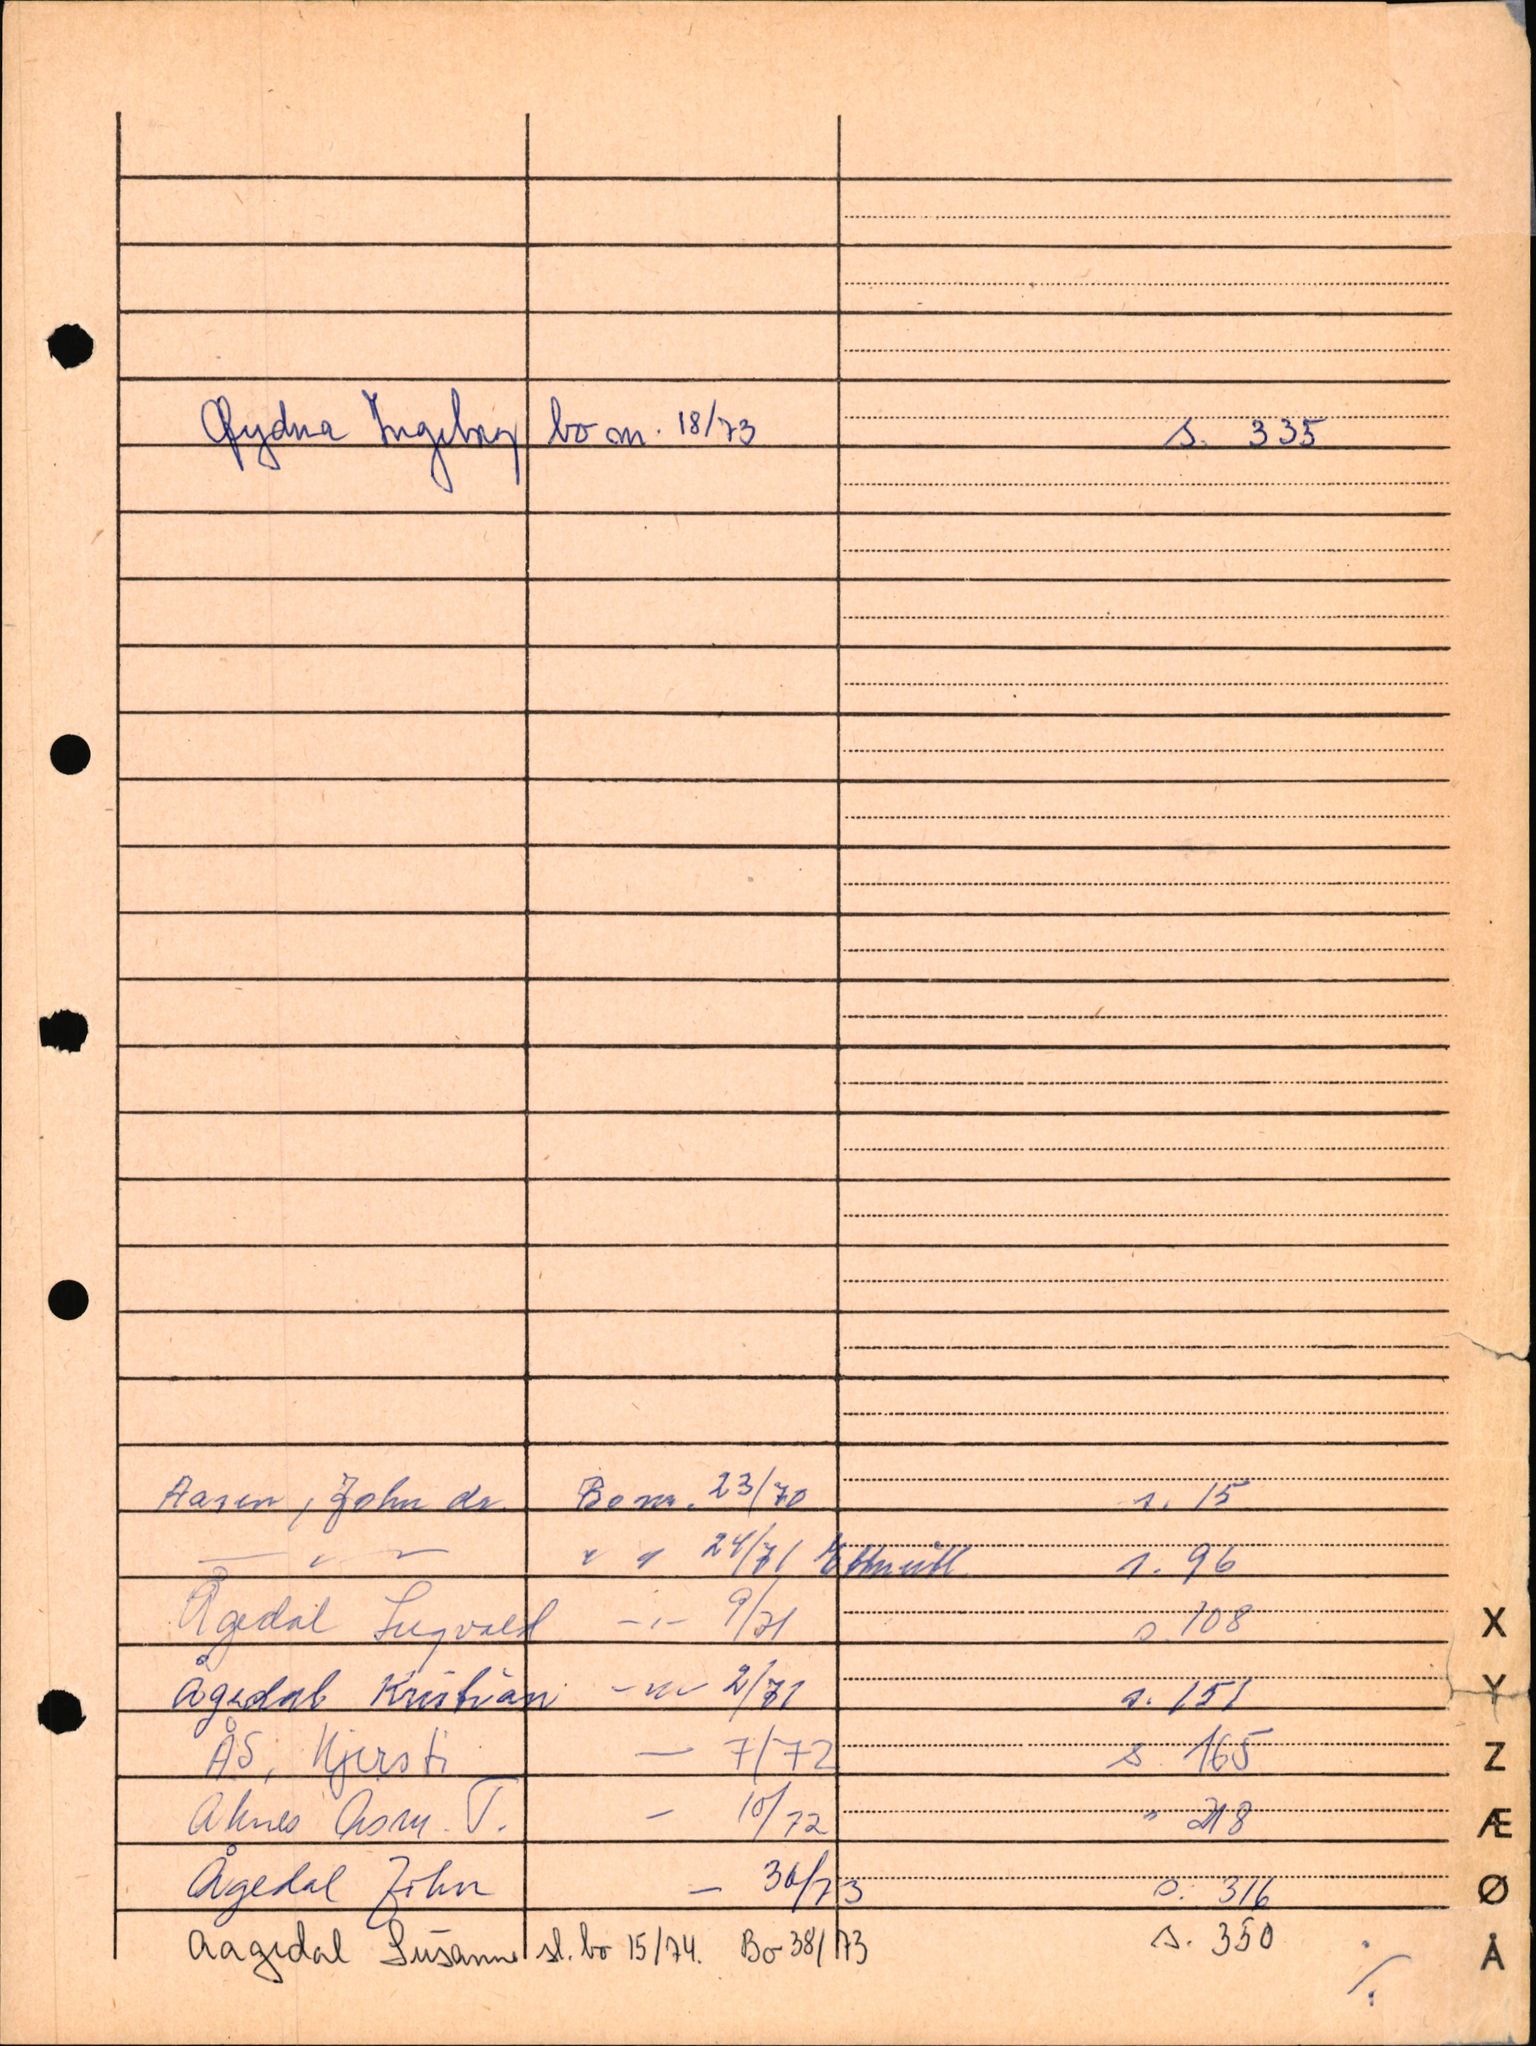 Øydna Ingeborg bo nr. 18/73 s. 335
Aasen, John dr. Bo nr. 23/70 s. 15
— " — " " 24/71 s. 96
Ågedal Sigvald -"- 9/71 s. 108
Ågedal Kristian -"- 2/71 s. 151
ÅS, Kjersti — 7/72 s. 165
Asm. T. — 10/72 " 218
Ågedal John — 30/73 s. 316
Aagedal Susanne sk. bo 15/74. Bo 38/73 s. 350
X
Y
Z
Æ
Ø
Å